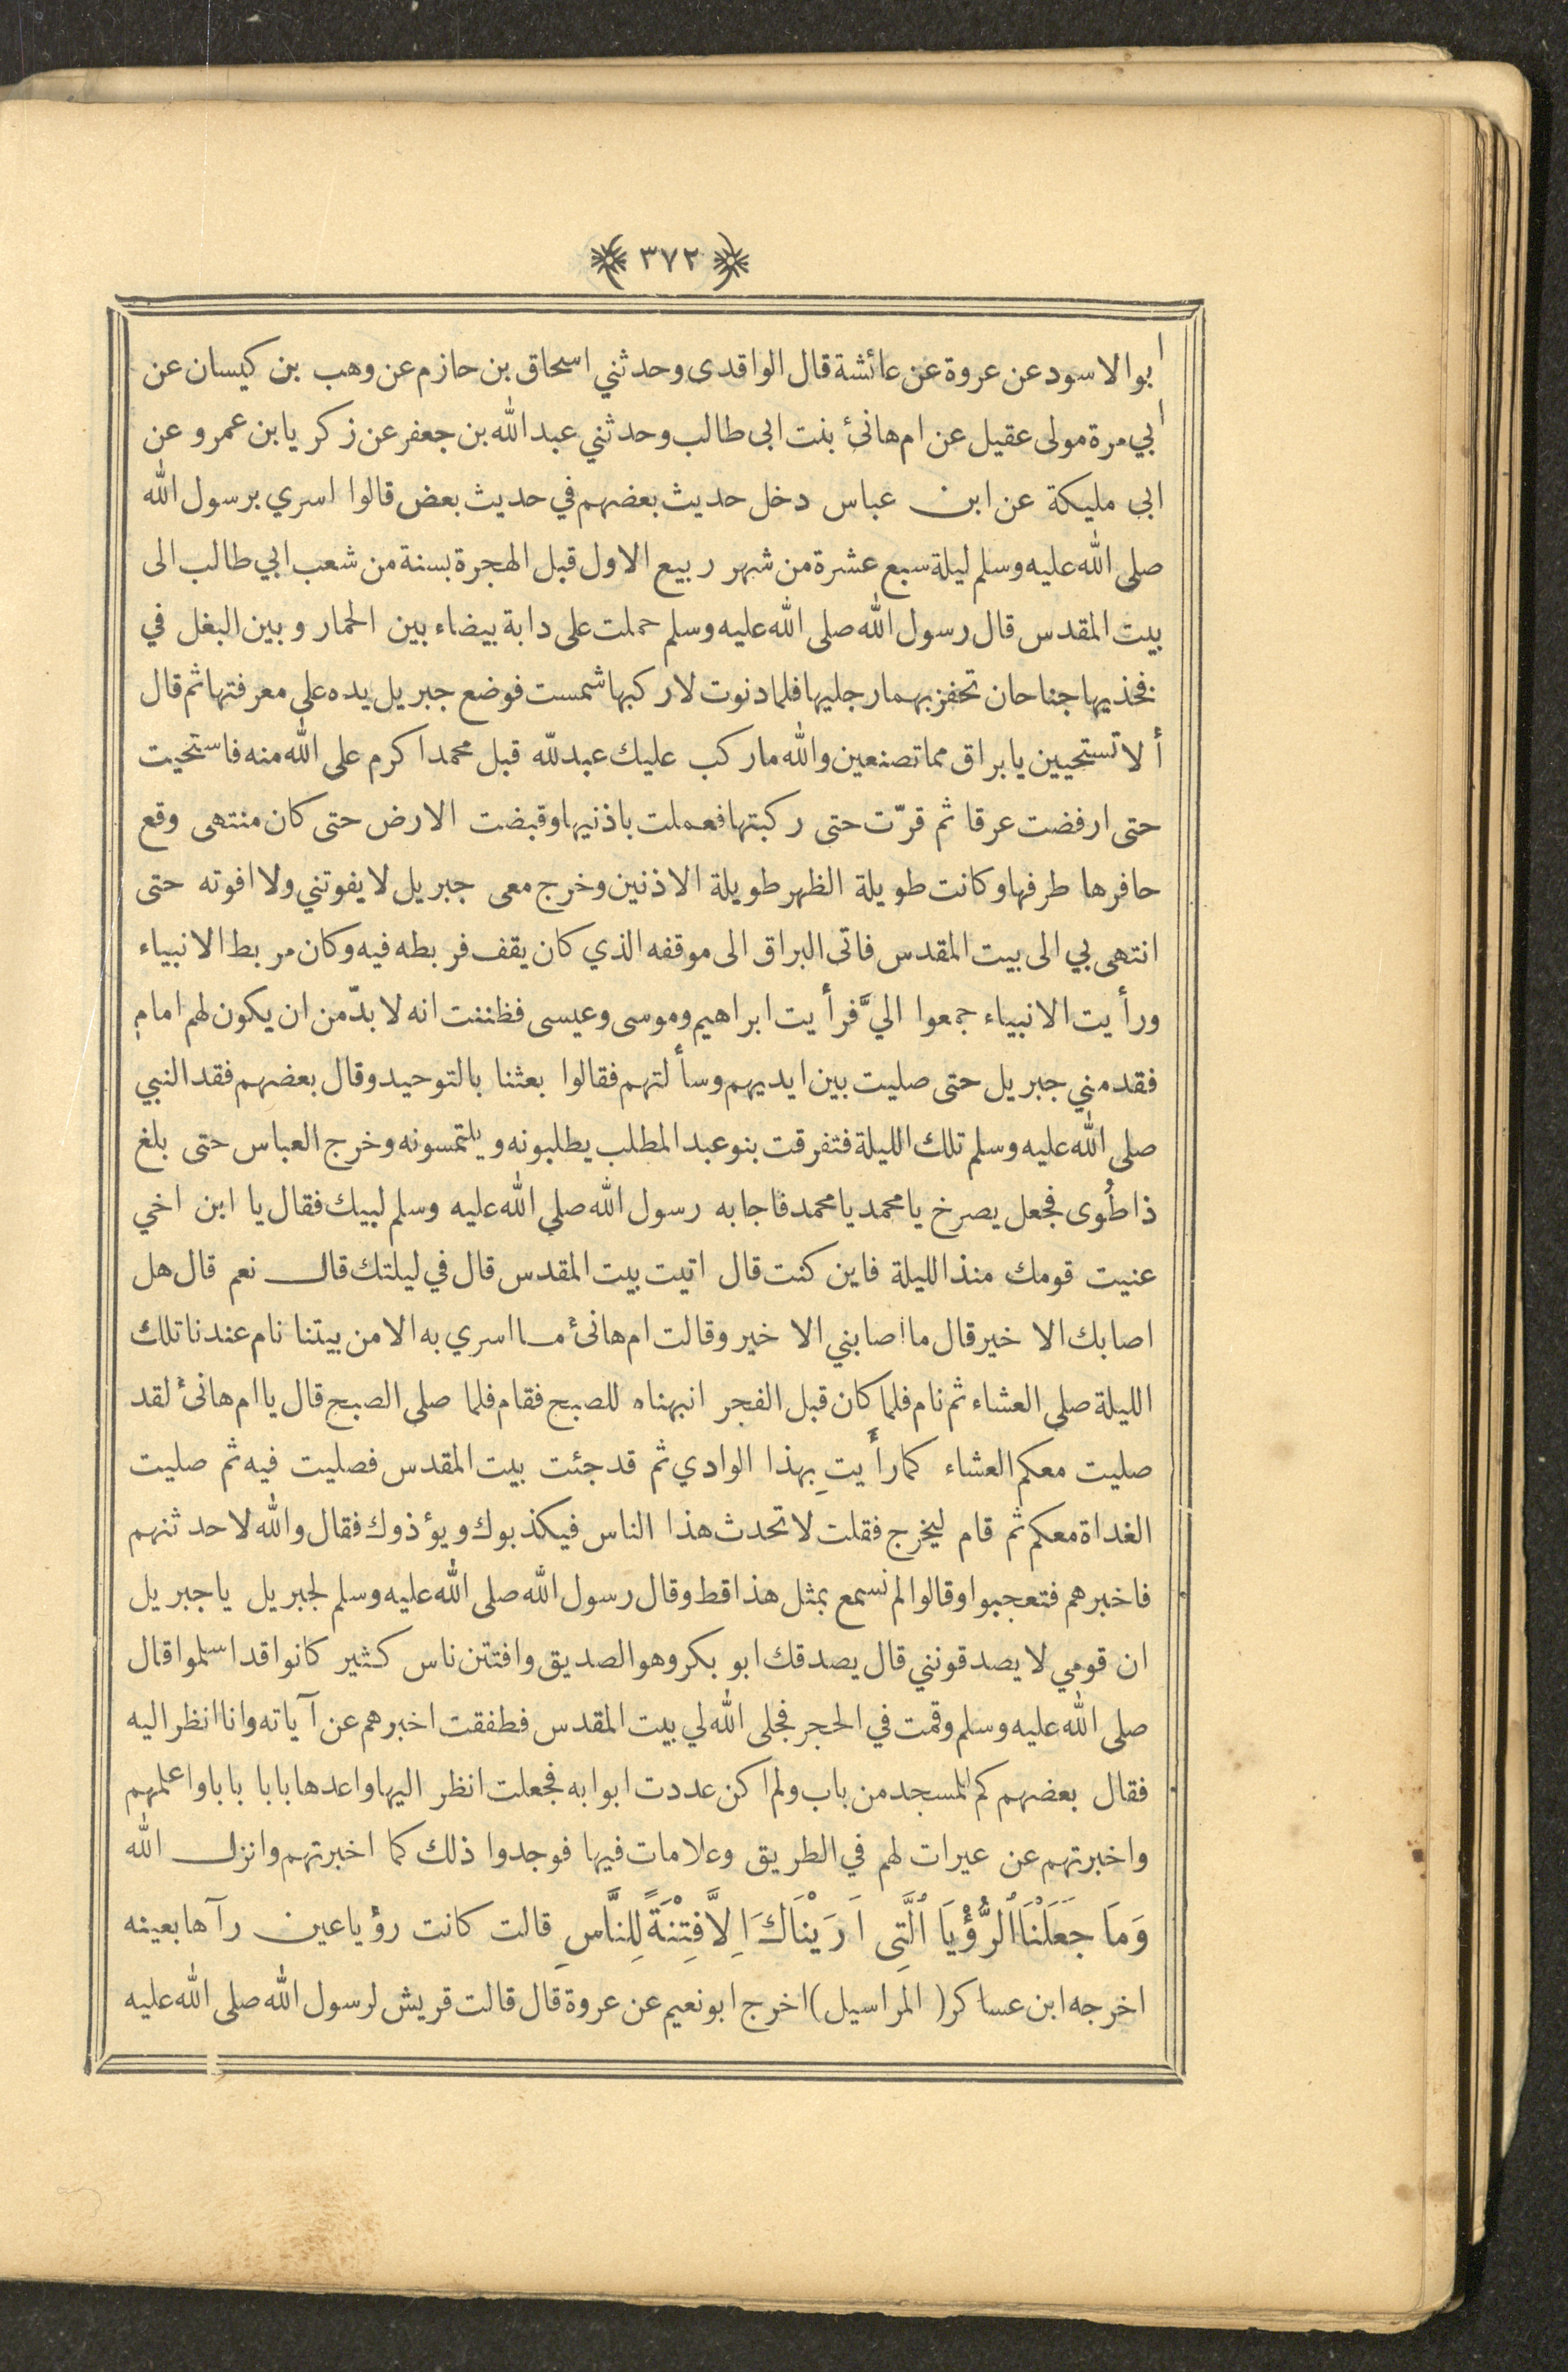 ٣٧٢
ابوالاسود عن عروة عن عائشة قال الواقدى وحدثني اسحاق بن حازم عن وهب بن كيسان عن
ابي مرة مولى عقيل عن ام هانئ بنت ابى طالب وحدثني عبد الله بن جعفر عن زكريا بن عمرو عن
ابي مليكة عن ابن عباس دخل حديث بعضهم في حديث بعض قالوا اسري برسول الله
صلى الله عليه وسلم ليلة سبع عشرة من شهر ربيع الاول قبل الهجرة بسنة من شعب ابي طالب الى
بيت المقدس قال رسول الله صلى الله عليه وسلم حملت على دابة بيضاء بين الحمار وبين البغل في
فخذيها جناحان تحفز بهما رجليها فلما دنوت لاركبها شمست فوضع جبريل يده على معرفتها ثم قال
ألا تستحيين يا براق مما تصنعين والله ما ركب عليك عبد لله قبل محمد اكرم على الله منه فاستحيت
حتى ارفضت عرقا ثم قرّت حتى ركبتها فعملت باذنيها وقبضت الارض حتى كان منتهى وقع
حافرها طرفها وكانت طويلة الظهر طويلة الاذنين وخرج معى جبريل لا يفوتني ولا افوته حتى
انتهى بي الى بيت المقدس فاتى البراق الى موقفه الذي كان يقف فربطه فيه وكان مربط الانبياء
ورأيت الانبياء جمعوا اليَّ فرأيت ابراهيم وموسى وعيسى فظننت انه لا بدّ من ان يكون لهم امام
فقدمني جبريل حتى صليت بين ايديهم وسألتهم فقالوا بعثنا بالتوحيد وقال بعضهم فقد النبي
صلى الله عليه وسلم تلك الليلة فتفرقت بنو عبد المطلب يطلبونه ويلتمسونه وخرج العباس حتى بلغ
ذا طُوى فجعل يصرخ يا محمد يا محمد فاجابه رسول الله صلى الله عليه وسلم لبيك فقال يا ابن اخي
عنيت قومك منذ الليلة فاين كنت قال اتيت بيت المقدس قال في ليلتك قال نعم قال هل
اصابك الا خير قال ما اصابني الا خير وقالت ام هانئ ما اسري به الا من بيتنا نام عندنا تلك
الليلة صلى العشاء ثم نام فلما كان قبل الفجر انبهناه للصبح فقام فلما صلى الصبح قال يا ام هانئ لقد
صليت معكم العشاء كما رأيتِ بهذا الوادي ثم قد جئت بيت المقدس فصليت فيه ثم صليت
الغداة معكم ثم قام ليخرج فقلت لا تحدث هذا الناس فيكذبوك ويؤذوك فقال والله لاحدثنهم
فاخبرهم فتعجبوا وقالوا لم نسمع بمثل هذا قط وقال رسول الله صلى الله عليه وسلم لجبريل يا جبريل
ان قومي لا يصدقونني قال يصدقك ابو بكر وهو الصديق وافتتن ناس كثير كانوا قد اسلموا قال
صلى الله عليه وسلم وقمت في الحجر فجلى الله لي بيت المقدس فطفقت اخبرهم عن آياته وانا انظر اليه
فقال بعضهم كم للمسجد من باب ولم اكن عددت ابوابه فجعلت انظر اليها واعدها بابا بابا واعلمهم
واخبرتهم عن عيرات لهم في الطريق وعلامات فيها فوجدوا ذلك كما اخبرتهم وانزل الله
وَمَا جَعَلْنَا ٱلرُّؤْيَا ٱلَّتِى اَرَيْنَاكَ اِلاَّ فِتْنَةً لِلنَّاسِ قالت كانت رؤيا عين رآها بعينه
اخرجه ابن عساكر (المراسيل) اخرج ابو نعيم عن عروة قال قالت قريش لرسول الله صلى الله عليه